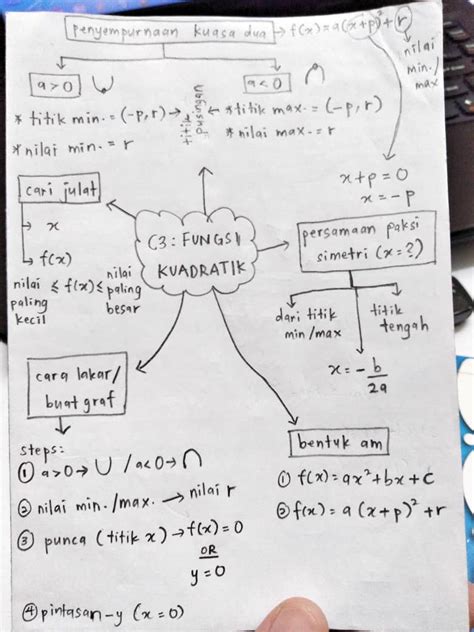 penyempurnaan kuasa dua → f(x) = a(x+p)² + r
nilai
min. /
max
a > 0 ∪
a < 0 ∩
* titik min. = (-p, r) →
* nilai min. = r
titik
pusingan
← * titik max. = (-p, r)
* nilai max. = r
x + p = 0
x = -p
cari julat
→ x
→ f(x)
nilai paling kecil ≤ f(x) ≤ nilai paling besar
C3: FUNGSI
KUADRATIK
persamaan paksi
simetri (x = ?)
dari titik
min/max
titik
tengah
x = - b/2a
cara lakar/
buat graf
steps:
① a>0 → ∪ / a<0 → ∩
② nilai min. /max. → nilai r
③ punca (titik x) → f(x) = 0
OR
y = 0
④ pintasan-y (x = 0)
bentuk am
① f(x) = ax² + bx + c
② f(x) = a (x+p)² + r